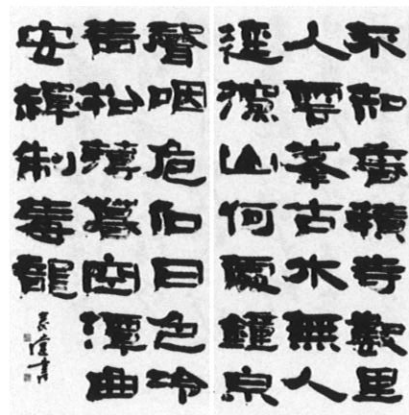 不知香積寺數里
入雲峯古木無人
徑深山何處鐘泉
聲咽危石日色冷
青松薄暮空潭曲
安禪制毒龍